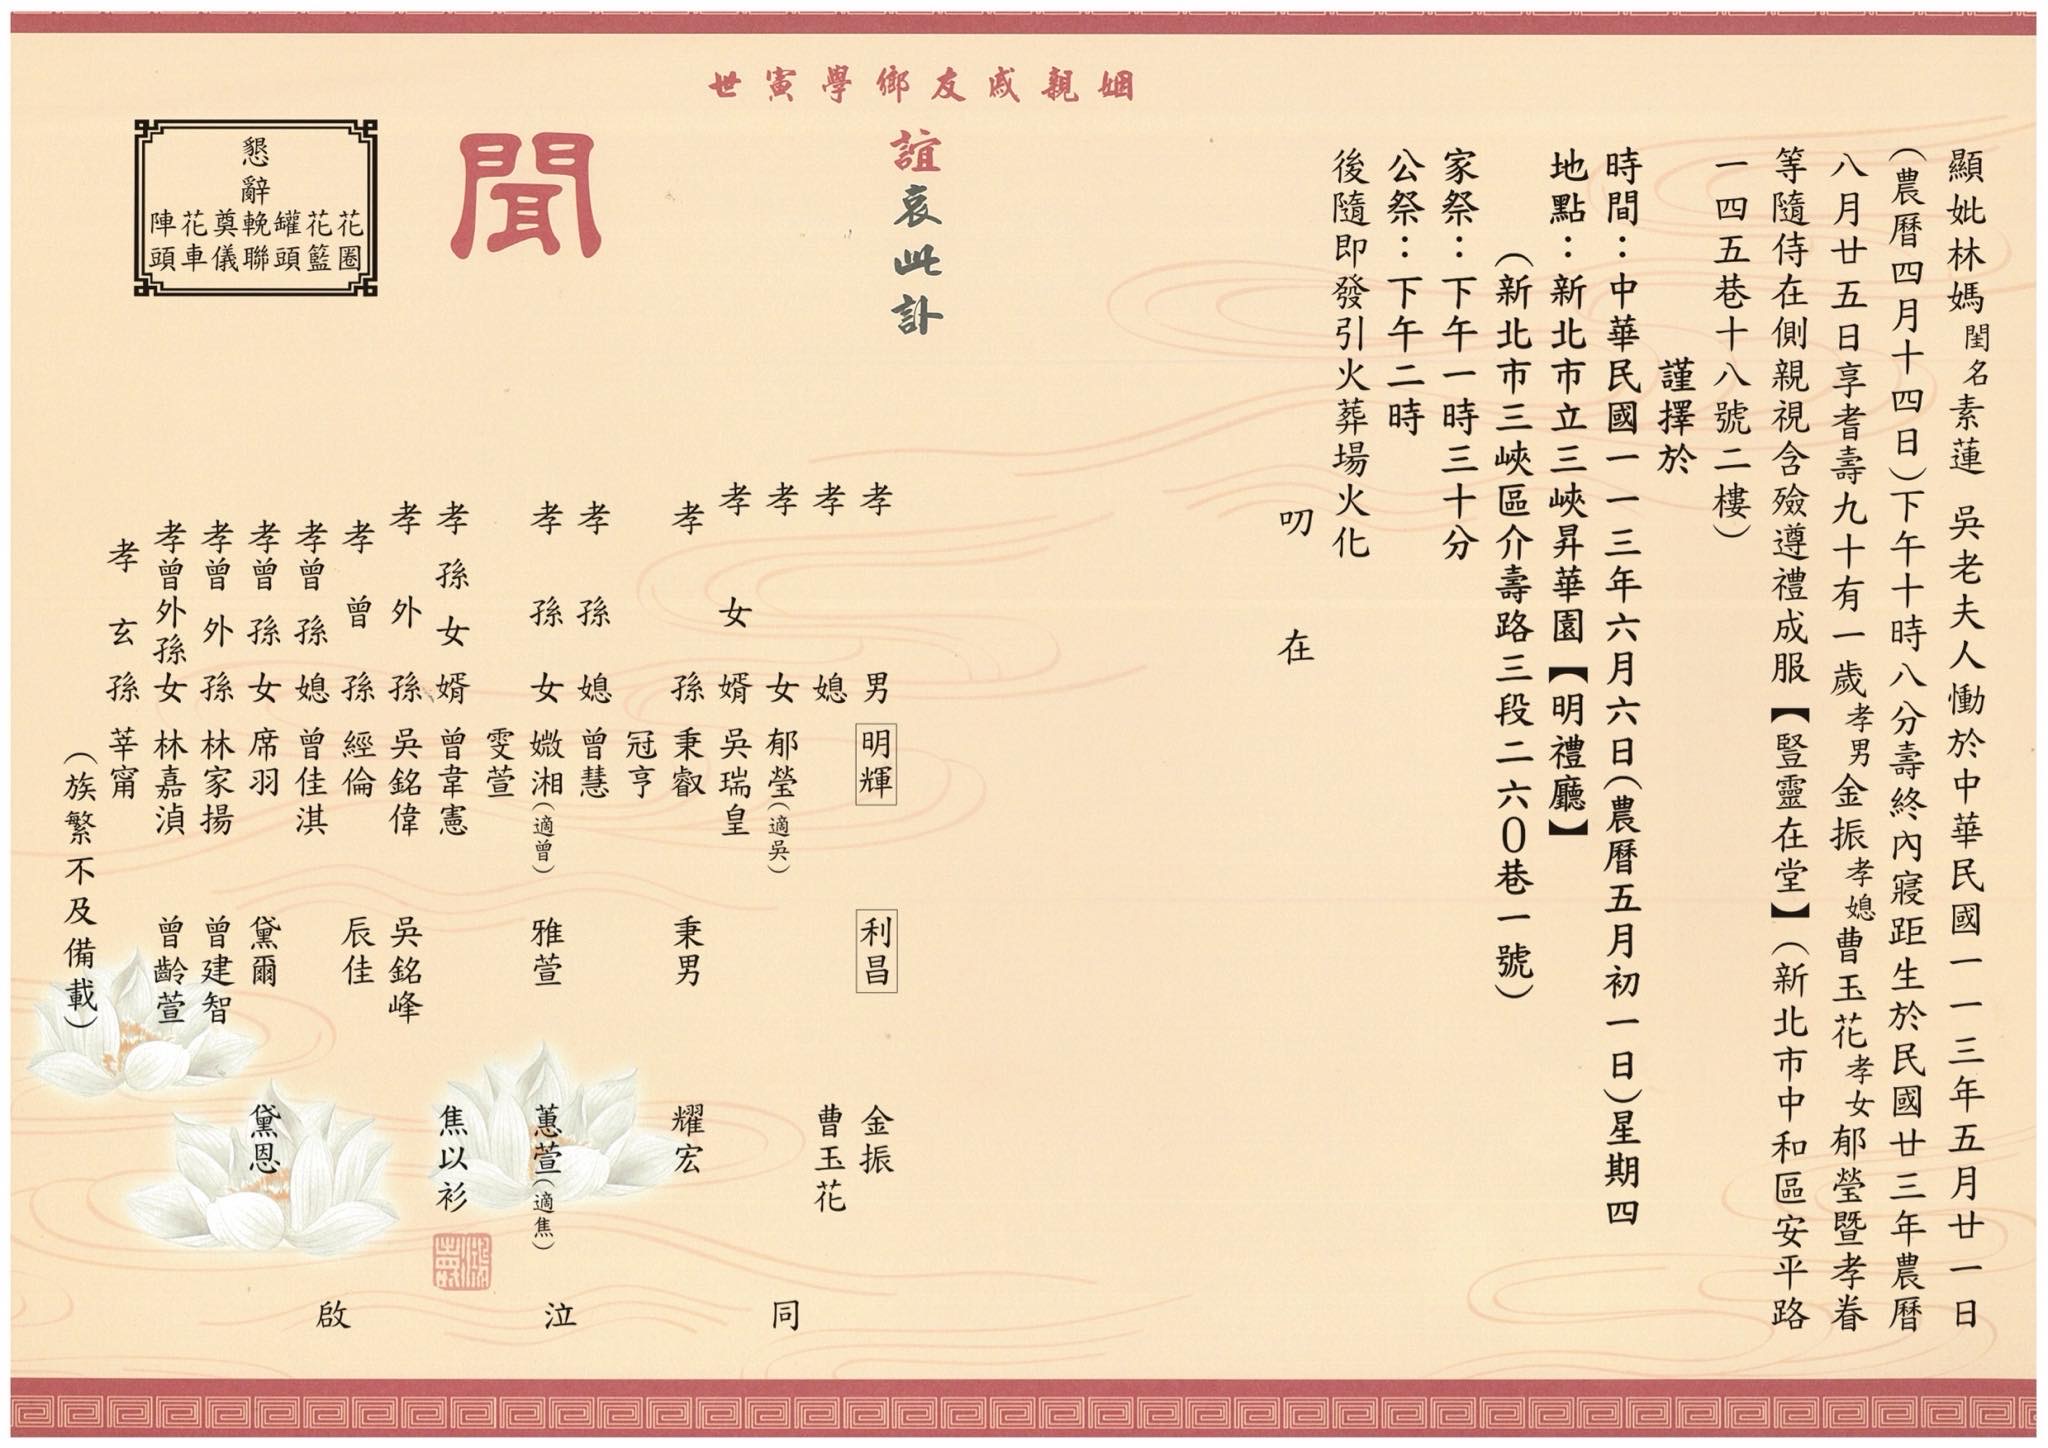 顯妣林媽閨名素蓮 吳老夫人慟於中華民國一一三年五月廿一日
(農曆四月十四日)下午十時八分壽終內寢距生於民國廿三年農曆
八月廿五日享耆壽九十有一歲孝男金振孝媳曹玉花孝女郁瑩暨孝眷
等隨侍在側親視含殮遵禮成服【豎靈在堂】(新北市中和區安平路
一四五巷十八號二樓)
謹擇於
時間：中華民國一一三年六月六日(農曆五月初一日)星期四
地點：新北市立三峽昇華園【明禮廳】
(新北市三峽區介壽路三段二六0巷一號)
家祭：下午一時三十分
公祭：下午二時
後隨即發引火葬場火化
叨在
姻親戚友鄉學寅世
誼哀此訃
聞
孝男 明輝 利昌 金振
孝媳 曹玉花
孝女 郁瑩(適吳)
孝女婿 吳瑞皇
孝孫 秉叡 秉男 耀宏
冠亨
孝孫媳 曾慧
孝孫女 媺湘(適曾) 雅萱 蕙萱(適焦)
雯萱
孝孫女婿 曾韋憲 焦以衫
孝外孫 吳銘偉 吳銘峰
孝曾孫 經倫 辰佳
孝曾孫媳 曾佳淇
孝曾孫女 席羽 黛爾 黛恩
孝曾外孫 林家揚 曾建智
孝曾外孫女 林嘉湞 曾齡萱
孝玄孫 莘甯
(族繁不及備載)
同泣啟
懇辭
花圈
花籃
罐頭
輓聯
奠儀
花車
陣頭